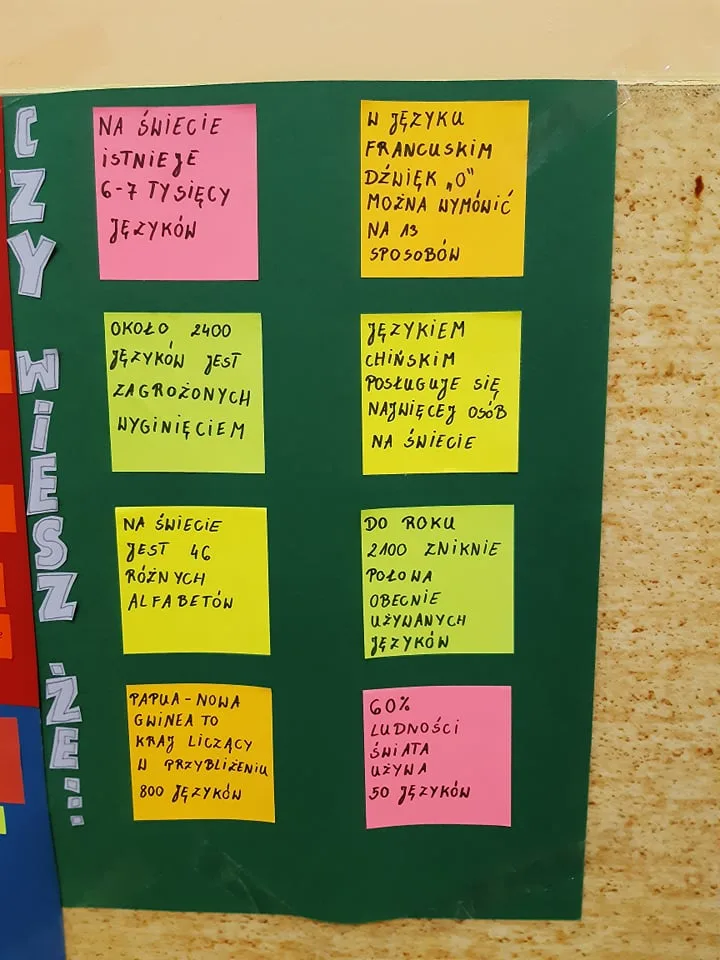 CZY WIESZ ŻE...
NA ŚWIECIE
ISTNIEJE
6-7 TYSIĘCY
JĘZYKÓW
W JĘZYKU
FRANCUSKIM
DŹWIĘK „O"
MOŻNA WYMÓWIĆ
NA 13
SPOSOBÓW
OKOŁO 2400
JĘZYKÓW JEST
ZAGROŻONYCH
WYGINIĘCIEM
JĘZYKIEM
CHIŃSKIM
POSŁUGUJE SIĘ
NAJWIĘCEJ OSÓB
NA ŚWIECIE
NA ŚWIECIE
JEST 46
RÓŻNYCH
ALFABETÓW
DO ROKU
2100 ZNIKNIE
POŁOWA
OBECNIE
UŻYWANYCH
JĘZYKÓW
PAPUA-NOWA
GWINEA TO
KRAJ LICZĄCY
W PRZYBLIŻENIU
800 JĘZYKÓW
60%
LUDNOŚCI
ŚWIATA
UŻYWA
50 JĘZYKÓW